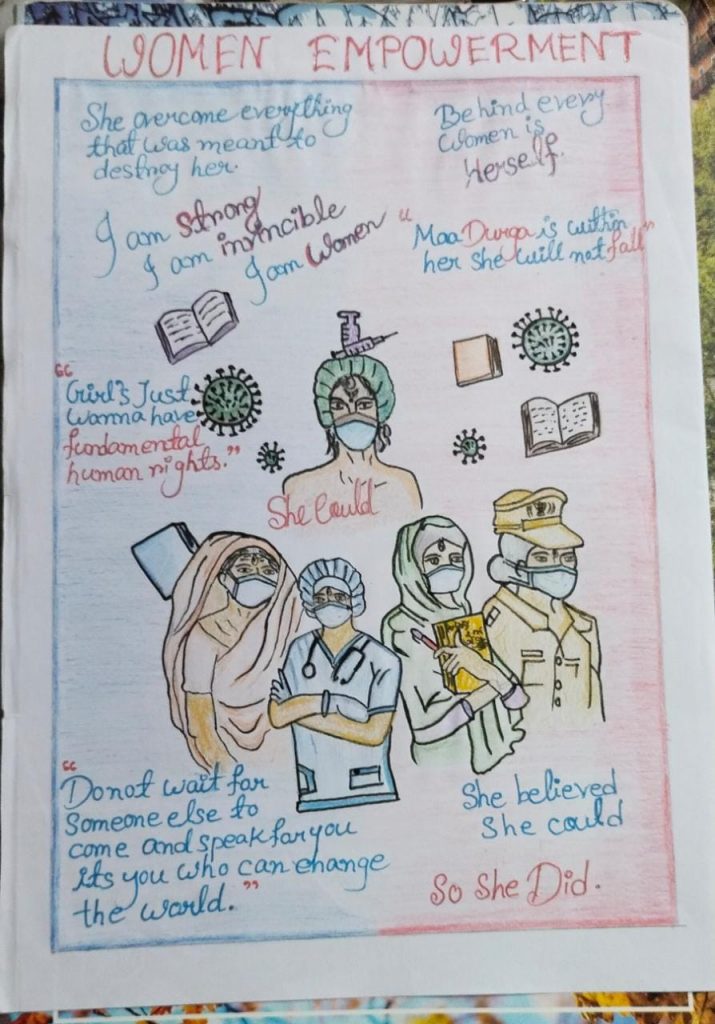 WOMEN EMPOWERMENT
She overcome everything
that was meant to
destroy her.
Behind every
Women is
Herself.
I am strong
I am invincible
I am Women
"Maa Durga is within
her she will not fall"
"Girl's Just
wanna have
fundamental
human rights."
She Could
"Do not wait for
Someone else to
come and speak for you
its you who can change
the world."
She believed
She could
So She Did.